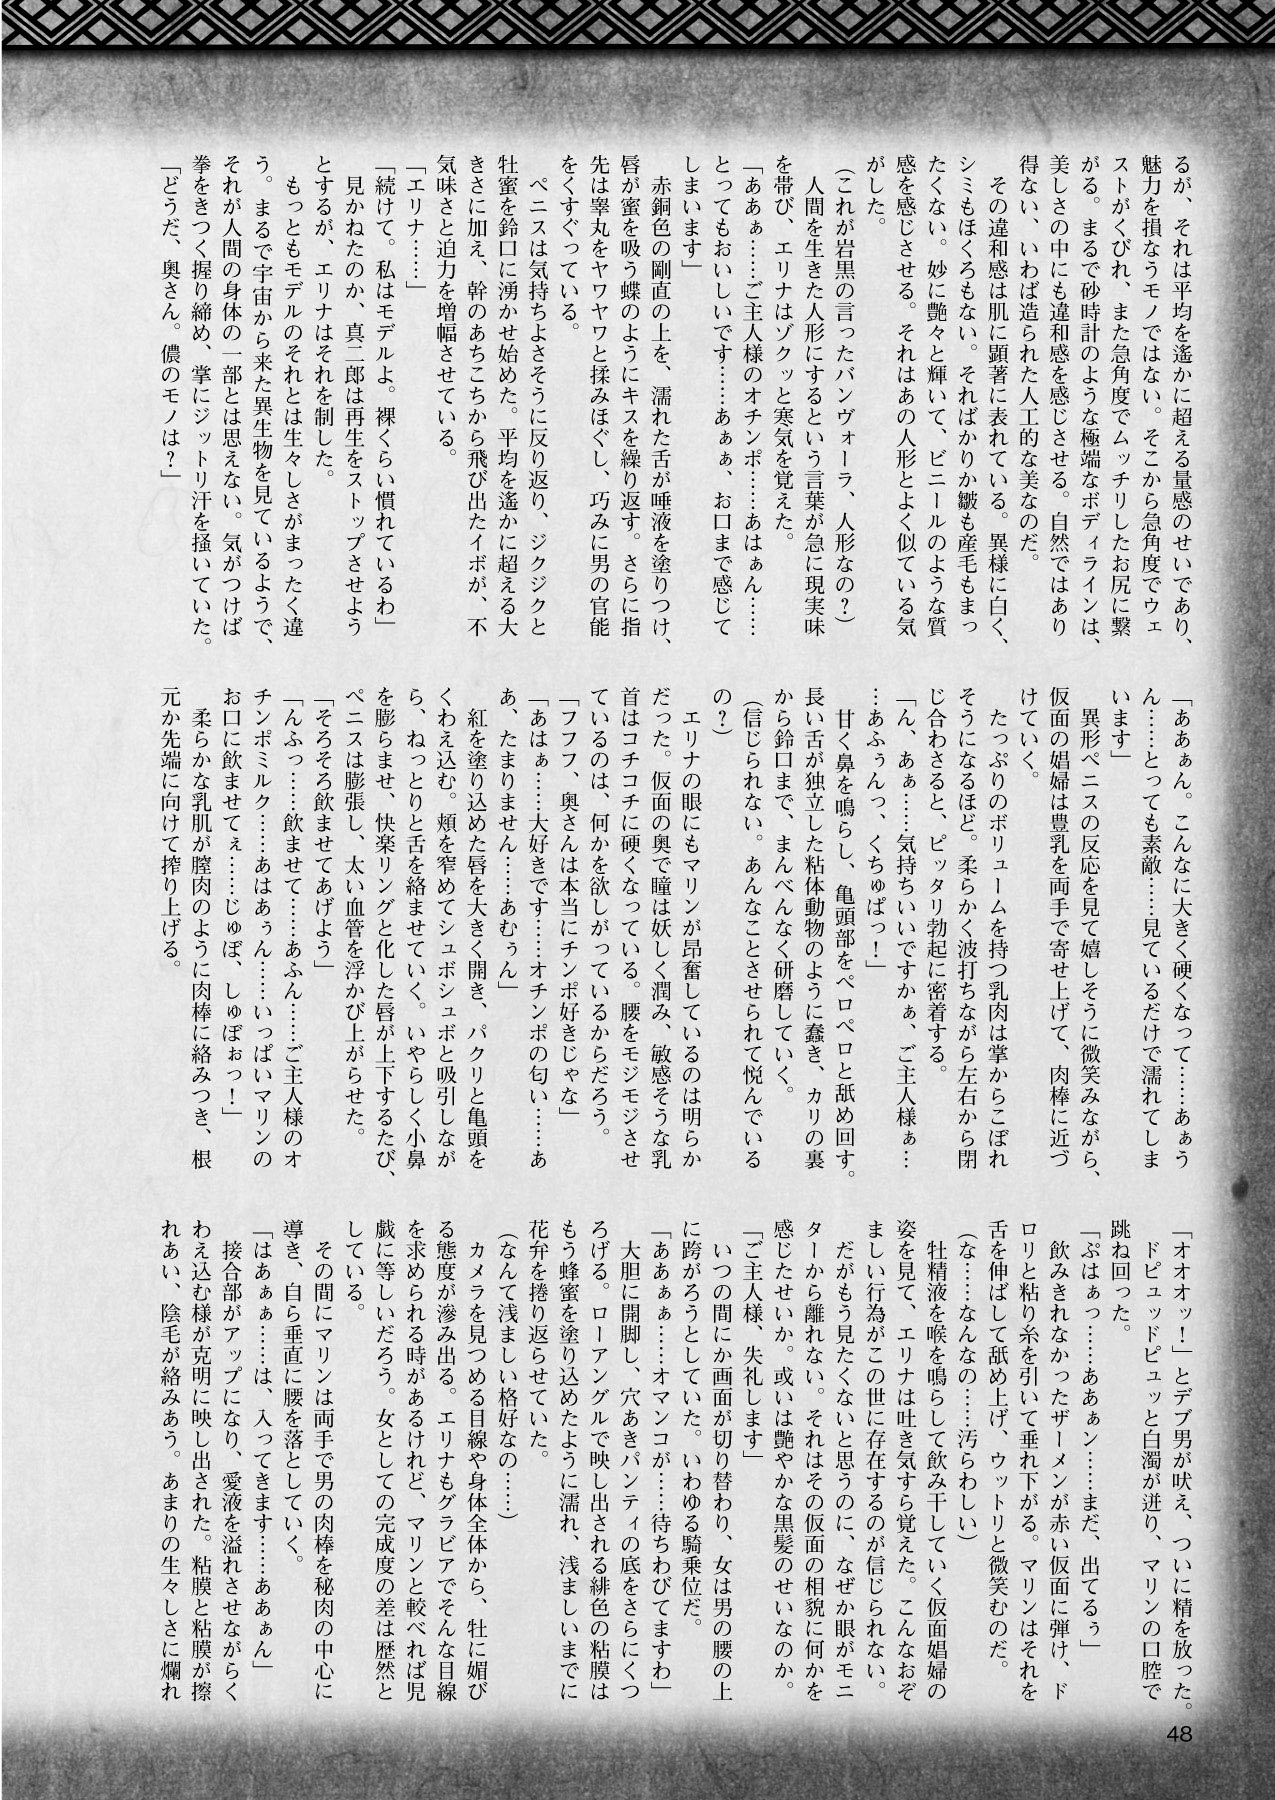 るが、それは平均を遙かに超える量感のせいであり、
魅力を損なうモノではない。そこから急角度でウェ
ストがくびれ、また急角度でムッチリしたお尻に繋
がる。まるで砂時計のような極端なボディラインは、
美しさの中にも違和感を感じさせる。自然ではあり
得ない、いわば造られた人工的な美なのだ。
その違和感は肌に顕著に表れている。異様に白く、
シミもほくろもない。そればかりか皺も産毛もまっ
たくない。妙に艶々と輝いて、ビニールのような質
感を感じさせる。それはあの人形とよく似ている気
がした。
(これが岩黒の言ったバンヴォーラ、人形なの?)
人間を生きた人形にするという言葉が急に現実味
を帯び、エリナはゾクッと寒気を覚えた。
「ああぁ……ご主人様のオチンポ……あはぁん……
とってもおいしいです……あぁぁ、お口まで感じて
しまいます」
赤銅色の剛直の上を、濡れた舌が唾液を塗りつけ、
唇が蜜を吸う蝶のようにキスを繰り返す。さらに指
先は睾丸をヤワヤワと揉みほぐし、巧みに男の官能
をくすぐっている。
ペニスは気持ちよさそうに反り返り、ジクジクと
牡蜜を鈴口に湧かせ始めた。平均を遙かに超える大
きさに加え、幹のあちこちから飛び出たイボが、不
気味さと迫力を増幅させている。
「エリナ……」
「続けて。私はモデルよ。裸くらい慣れているわ」
見かねたのか、真二郎は再生をストップさせよう
とするが、エリナはそれを制した。
もっともモデルのそれとは生々しさがまったく違
う。まるで宇宙から来た異生物を見ているようで、
それが人間の身体の一部とは思えない。気がつけば
拳をきつく握り締め、掌にジットリ汗を掻いていた。
「どうだ、奥さん。儂のモノは?」
「ああぁん。こんなに大きく硬くなって……あぁう
ん……とっても素敵……見ているだけで濡れてしま
います」
異形ペニスの反応を見て嬉しそうに微笑みながら、
仮面の娼婦は豊乳を両手で寄せ上げて、肉棒に近づ
けていく。
たっぷりのボリュームを持つ乳肉は掌からこぼれ
そうになるほど。柔らかく波打ちながら左右から閉
じ合わさると、ピッタリ勃起に密着する。
「ん、あぁ……気持ちいいですかぁ、ご主人様ぁ…
…あふぅんっ、くちゅぱっ!」
甘く鼻を鳴らし、亀頭部をペロペロと舐め回す。
長い舌が独立した粘体動物のように蠢き、カリの裏
から鈴口まで、まんべんなく研磨していく。
(信じられない。あんなことさせられて悦んでいる
の?)
エリナの眼にもマリンが昂奮しているのは明らか
だった。仮面の奥で瞳は妖しく潤み、敏感そうな乳
首はコチコチに硬くなっている。腰をモジモジさせ
ているのは、何かを欲しがっているからだろう。
「フフフ、奥さんは本当にチンポ好きじゃな」
「あはぁ……大好きです……オチンポの匂い……あ
あ、たまりません……あむぅん」
紅を塗り込めた唇を大きく開き、パクリと亀頭を
くわえ込む。頬を窄めてシュボシュボと吸引しなが
ら、ねっとりと舌を絡ませていく。いやらしく小鼻
を膨らませ、快楽リングと化した唇が上下するたび、
ペニスは膨張し、太い血管を浮かび上がらせた。
「そろそろ飲ませてあげよう」
「んふっ……飲ませて……あふん……ご主人様のオ
チンポミルク……あはあぅん……いっぱいマリンの
お口に飲ませてぇ……じゅぽ、しゅぽぉっ!」
柔らかな乳肌が膣肉のように肉棒に絡みつき、根
元か先端に向けて搾り上げる。
「オオオッ!」とデブ男が吠え、ついに精を放った。
ドピュッドピュッと白濁が迸り、マリンの口腔で
跳ね回った。
「ぷはぁっ……ああぁン……まだ、出てるぅ」
飲みきれなかったザーメンが赤い仮面に弾け、ド
ロリと粘り糸を引いて垂れ下がる。マリンはそれを
舌を伸ばして舐め上げ、ウットリと微笑むのだ。
(な……なんなの……汚らわしい)
牡精液を喉を鳴らして飲み干していく仮面娼婦の
姿を見て、エリナは吐き気すら覚えた。こんなおぞ
ましい行為がこの世に存在するのが信じられない。
だがもう見たくないと思うのに、なぜか眼がモニ
ターから離れない。それはその仮面の相貌に何かを
感じたせいか。或いは艶やかな黒髪のせいなのか。
「ご主人様、失礼します」
いつの間にか画面が切り替わり、女は男の腰の上
に跨がろうとしていた。いわゆる騎乗位だ。
「ああぁぁ……オマンコが……待ちわびてますわ」
大胆に開脚し、穴あきパンティの底をさらにくつ
ろげる。ローアングルで映し出される緋色の粘膜は
もう蜂蜜を塗り込めたように濡れ、浅ましいまでに
花弁を捲り返らせていた。
(なんて浅ましい格好なの……)
カメラを見つめる目線や身体全体から、牡に媚び
る態度が滲み出る。エリナもグラビアでそんな目線
を求められる時があるけれど、マリンと較べれば児
戯に等しいだろう。女としての完成度の差は歴然と
している。
その間にマリンは両手で男の肉棒を秘肉の中心に
導き、自ら垂直に腰を落としていく。
「はあぁぁ……は、入ってきます……ああぁん」
接合部がアップになり、愛液を溢れさせながらく
わえ込む様が克明に映し出された。粘膜と粘膜が擦
れあい、陰毛が絡みあう。あまりの生々しさに爛れ
48